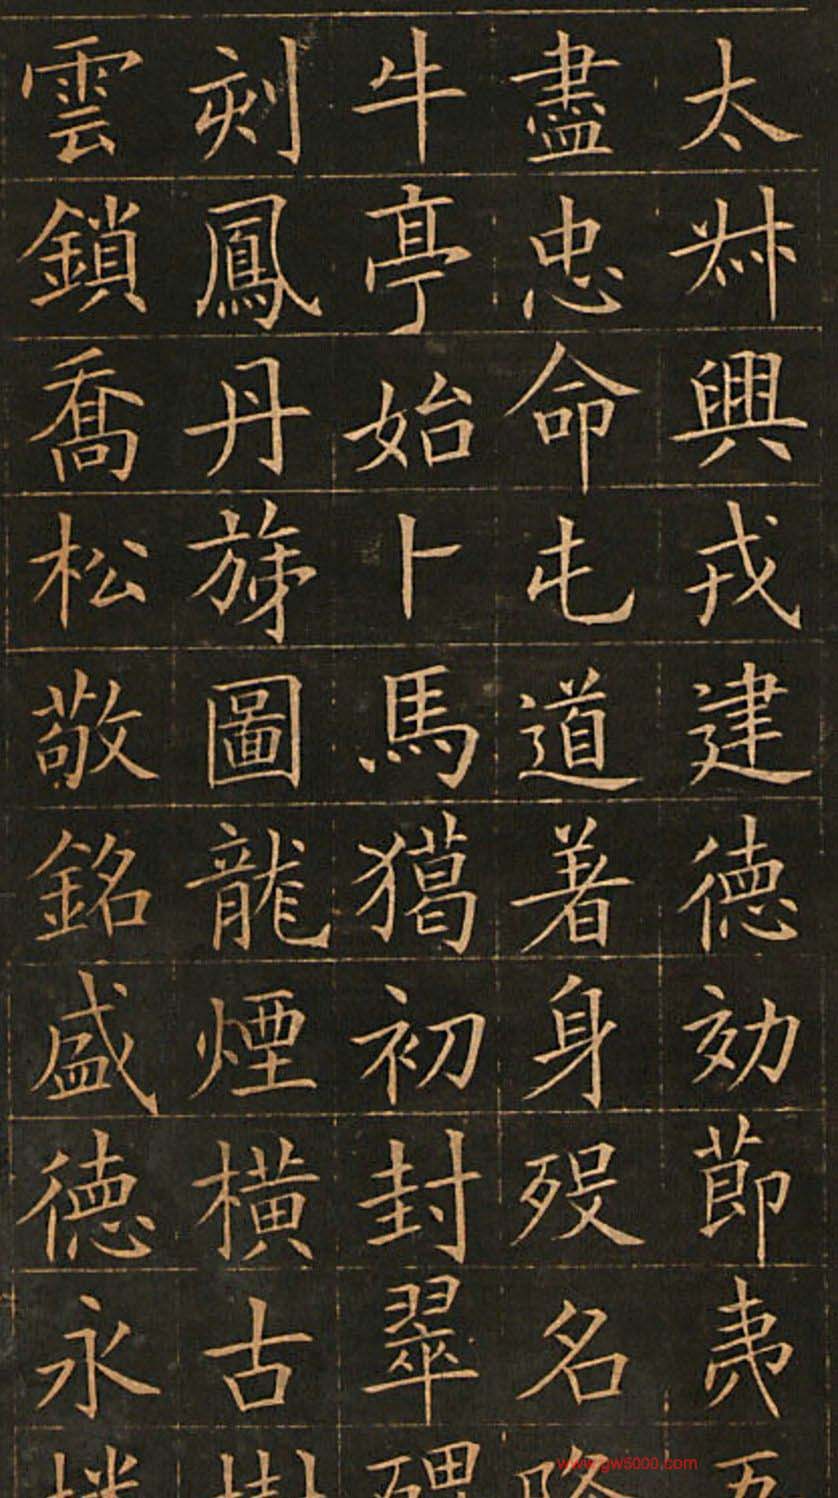 太叔興戎建德効節夷
盡忠命屯道著身歿名
牛亭始卜馬獦初封翠
刻鳳丹旐圖龍煙橫古
雲鎖喬松敬銘盛德永
www.gw5000.com